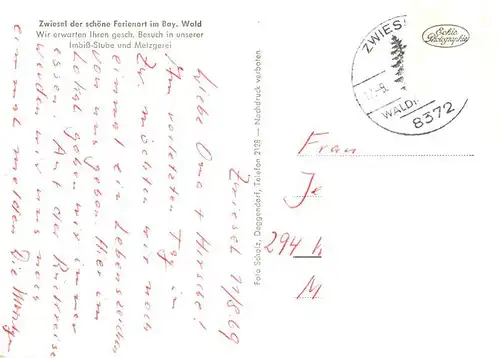 Zwiesel der schöne Ferienort im Bay. Wald
Wir erwarten Ihren gesch. Besuch in unserer
Imbiß-Stube und Metzgerei
Zwiesel 11/8.69
Liebe Oma + Hirsche!
Am vorletzten Tag in
Zw. möchten wir noch
einmal ein Lebenszeichen
von uns geben. Hier im
Lokal gehen wir immer
essen. Auf der Rückreise
werden wir uns noch
einmal melden. Die
Foto Scholz, Deggendorf, Telefon 2128 — Nachdruck verboten
Echte
Photographie
ZWIES
8372
Frau
Je
294
M